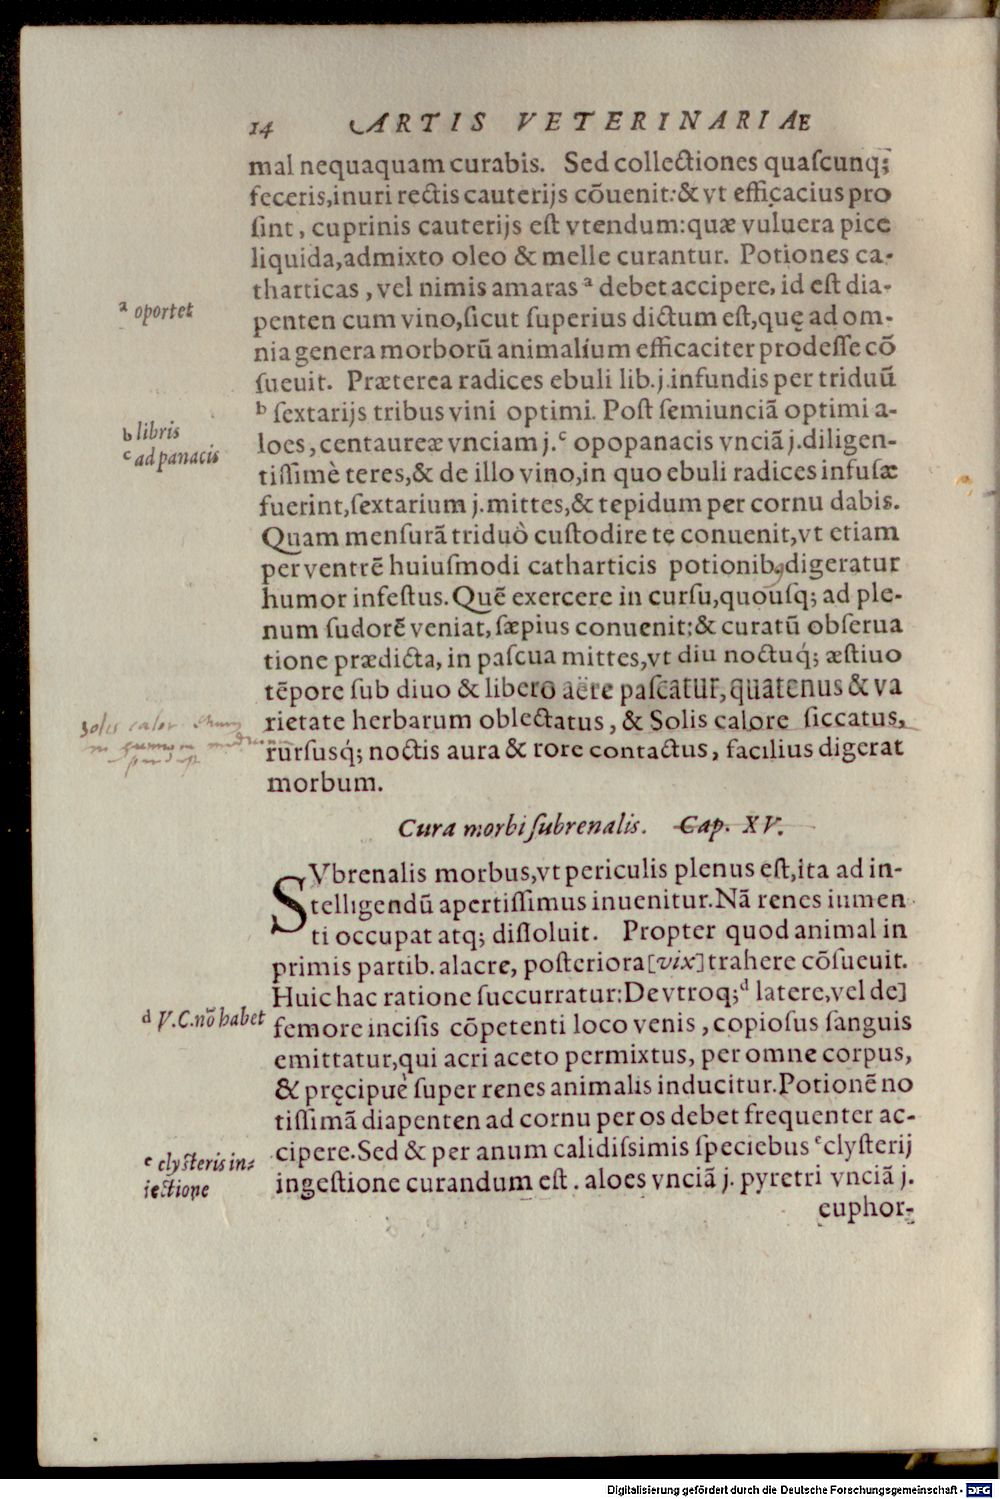 14 ARTIS VETERINARIAE
mal nequaquam curabis. Sed collectiones quaſcunq;
feceris,inuri rectis cauterijs cōuenit:& vt efficacius pro
ſint, cuprinis cauterijs eſt vtendum:quæ vulnera pice
liquida,admixto oleo & melle curantur. Potiones ca-
tharticas, vel nimis amaras ᵃ debet accipere, id eſt dia-
ᵃ oportet
penten cum vino,ſicut ſuperius dictum eſt,quę ad om-
nia genera morborū animalium efficaciter prodeſſe cō
ſueuit. Præterea radices ebuli lib.j.infundis per triduū
ᵇ ſextarijs tribus vini optimi. Poſt ſemiunciā optimi a-
ᵇ libris
loes, centaureæ vnciam j.ᶜ opopanacis vnciā j.diligen-
ᶜ ad panacis
tiſſimè teres,& de illo vino,in quo ebuli radices infuſæ
fuerint,ſextarium j.mittes,& tepidum per cornu dabis.
Quam menſurā triduò cuſtodire te conuenit,vt etiam
per ventrē huiuſmodi catharticis potionib. digeratur
humor infeſtus. Quē exercere in curſu,quouſq; ad ple-
num ſudorē veniat, ſæpius conuenit:& curatū obſerua
tione prædicta, in paſcua mittes,vt diu noctuq́; æſtiuo
tēpore ſub diuo & libero aëre paſcatur,quatenus & va
rietate herbarum oblectatus, & Solis calore ſiccatus,
solis calor
rurſusq́; noctis aura & rore contactus, facilius digerat
morbum.
Cura morbi ſubrenalis. Cap. XV.
SVbrenalis morbus,vt periculis plenus eſt,ita ad in-
telligendū apertiſſimus inuenitur.Nā renes iumen
ti occupat atq; diſſoluit. Propter quod animal in
primis partib. alacre, poſteriora [vix] trahere cōſueuit.
Huic hac ratione ſuccurratur:De vtroq;ᵈ latere,vel de]
ᵈ V.C.nō habet
femore inciſis cōpetenti loco venis, copioſus ſanguis
emittatur,qui acri aceto permixtus, per omne corpus,
& pręcipuè ſuper renes animalis inducitur.Potionē no
tiſſimā diapenten ad cornu per os debet frequenter ac-
cipere.Sed & per anum calidiſsimis ſpeciebus ᵉ clyſterij
ᵉ clyſteris in-
iectione
ingeſtione curandum eſt. aloes vnciā j. pyretri vnciā j.
euphor-
Digitalisierung gefördert durch die Deutsche Forschungsgemeinschaft - DFG